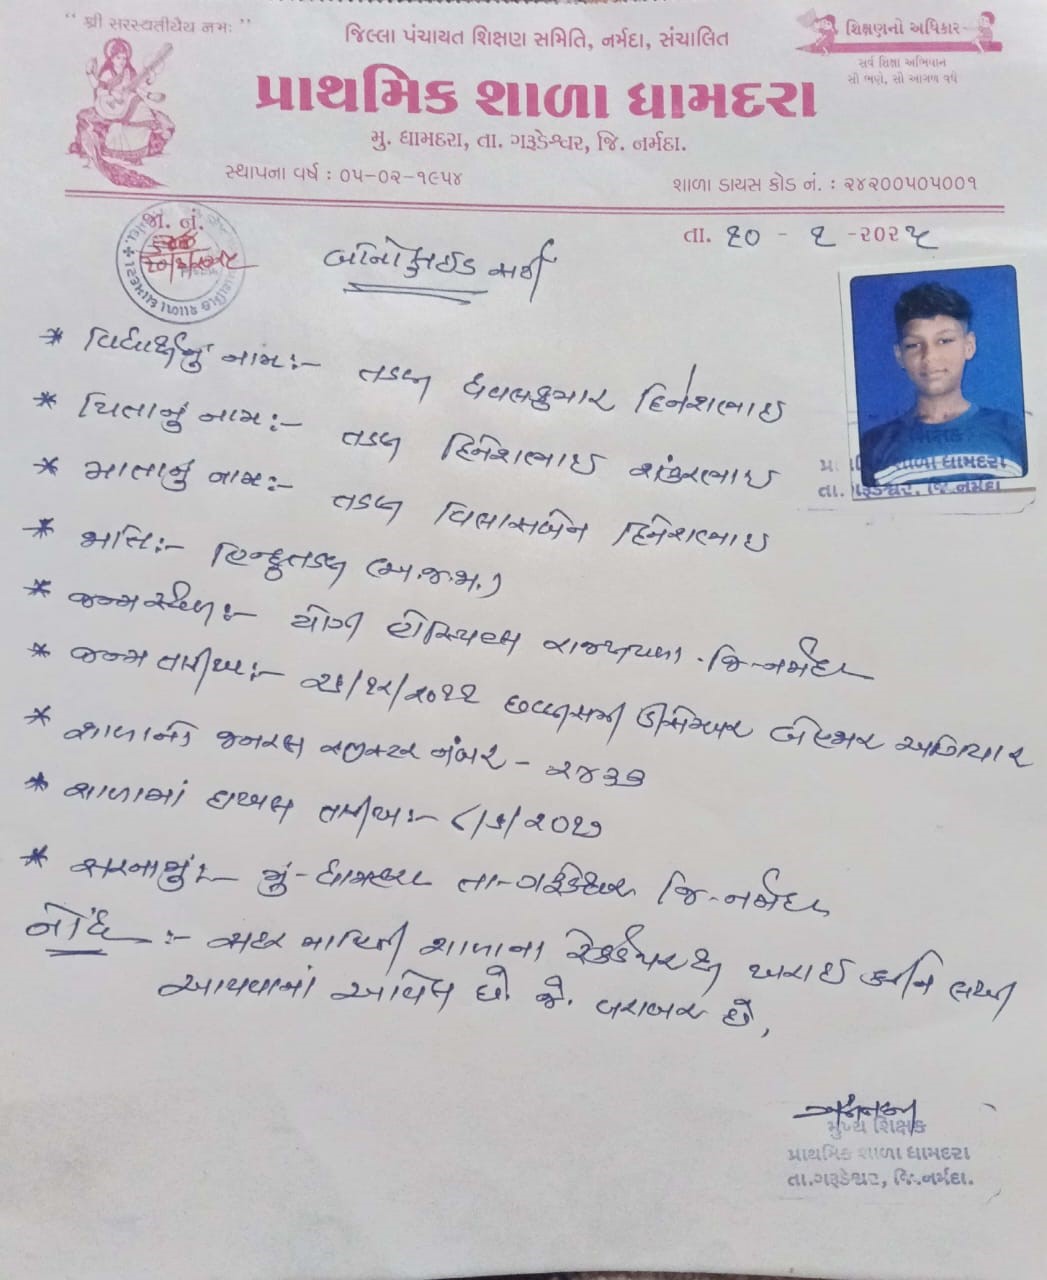 “ શ્રી સરસ્વતીયૈય નમઃ ”
જિલ્લા પંચાયત શિક્ષણ સમિતિ, નર્મદા, સંચાલિત
શિક્ષણનો અધિકાર
સર્વ શિક્ષા અભિયાન
સૌ ભણે, સૌ આગળ વધે
પ્રાથમિક શાળા ધામદરા
મુ. ધામદરા, તા. ગરૂડેશ્વર, જિ. નર્મદા.
સ્થાપના વર્ષ : ૦૫-૦૨-૧૯૫૪
શાળા ડાયસ કોડ નં. : ૨૪૨૦૦૫૦૫૦૦૧
જા. નં.
તા. ૧૦ - ૬ -૨૦૨૫
બોનોફાઈડ સર્ટી
* વિદ્યાર્થીનું નામઃ- તડવી ધવલકુમાર દિનેશભાઇ
* પિતાનું નામઃ- તડવી દિનેશભાઇ શંકરભાઇ
* માતાનું નામઃ- તડવી વિલાસબેન દિનેશભાઇ
* જાતિઃ- હિન્દુતડવી (અ.જ.જા.)
* જન્મ સ્થળઃ- હોસ્પિટલ રાજપીપળા . જિ-નર્મદા
* જન્મ તારીખઃ- ૨૬/૧૨/૨૦૧૧ છવ્વીસમી ડિસેમ્બર બેહજાર અગિયાર
* શાળાનો જનરલ રજીસ્ટર નંબર - ૨૪૩૬
* શાળામાં દાખલ તારીખઃ- ૮/૬/૨૦૧૭
* સરનામુંઃ- મું-ધામદરા તા-ગરૂડેશ્વર જિ-નર્મદા
નોંધ :- સદર માહિતી શાળાના રેકર્ડ પરથી ખરાઇ કરીને લખી
આપવામાં આવેલ છે. જે. બરાબર છે,
શિક્ષક
પ્રા શાળા ધામદરા
તા. ગરૂડેશ્વર, જિ.નર્મદા
મુખ્ય શિક્ષક
પ્રાથમિક શાળા ધામદરા
તા.ગરૂડેશ્વર, જિ.નર્મદા.